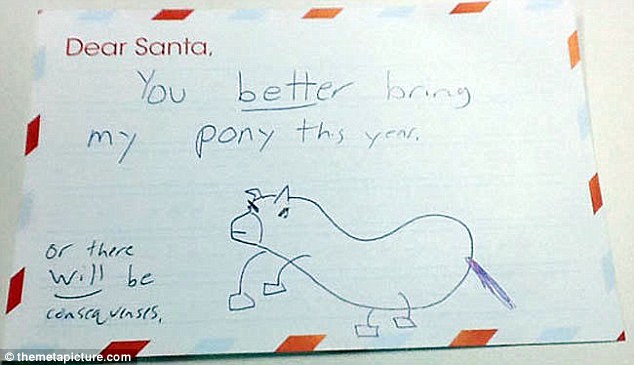 Dear Santa,
You better bring
my pony this year.
or there
will be
consequenses.
© themetapicture.com